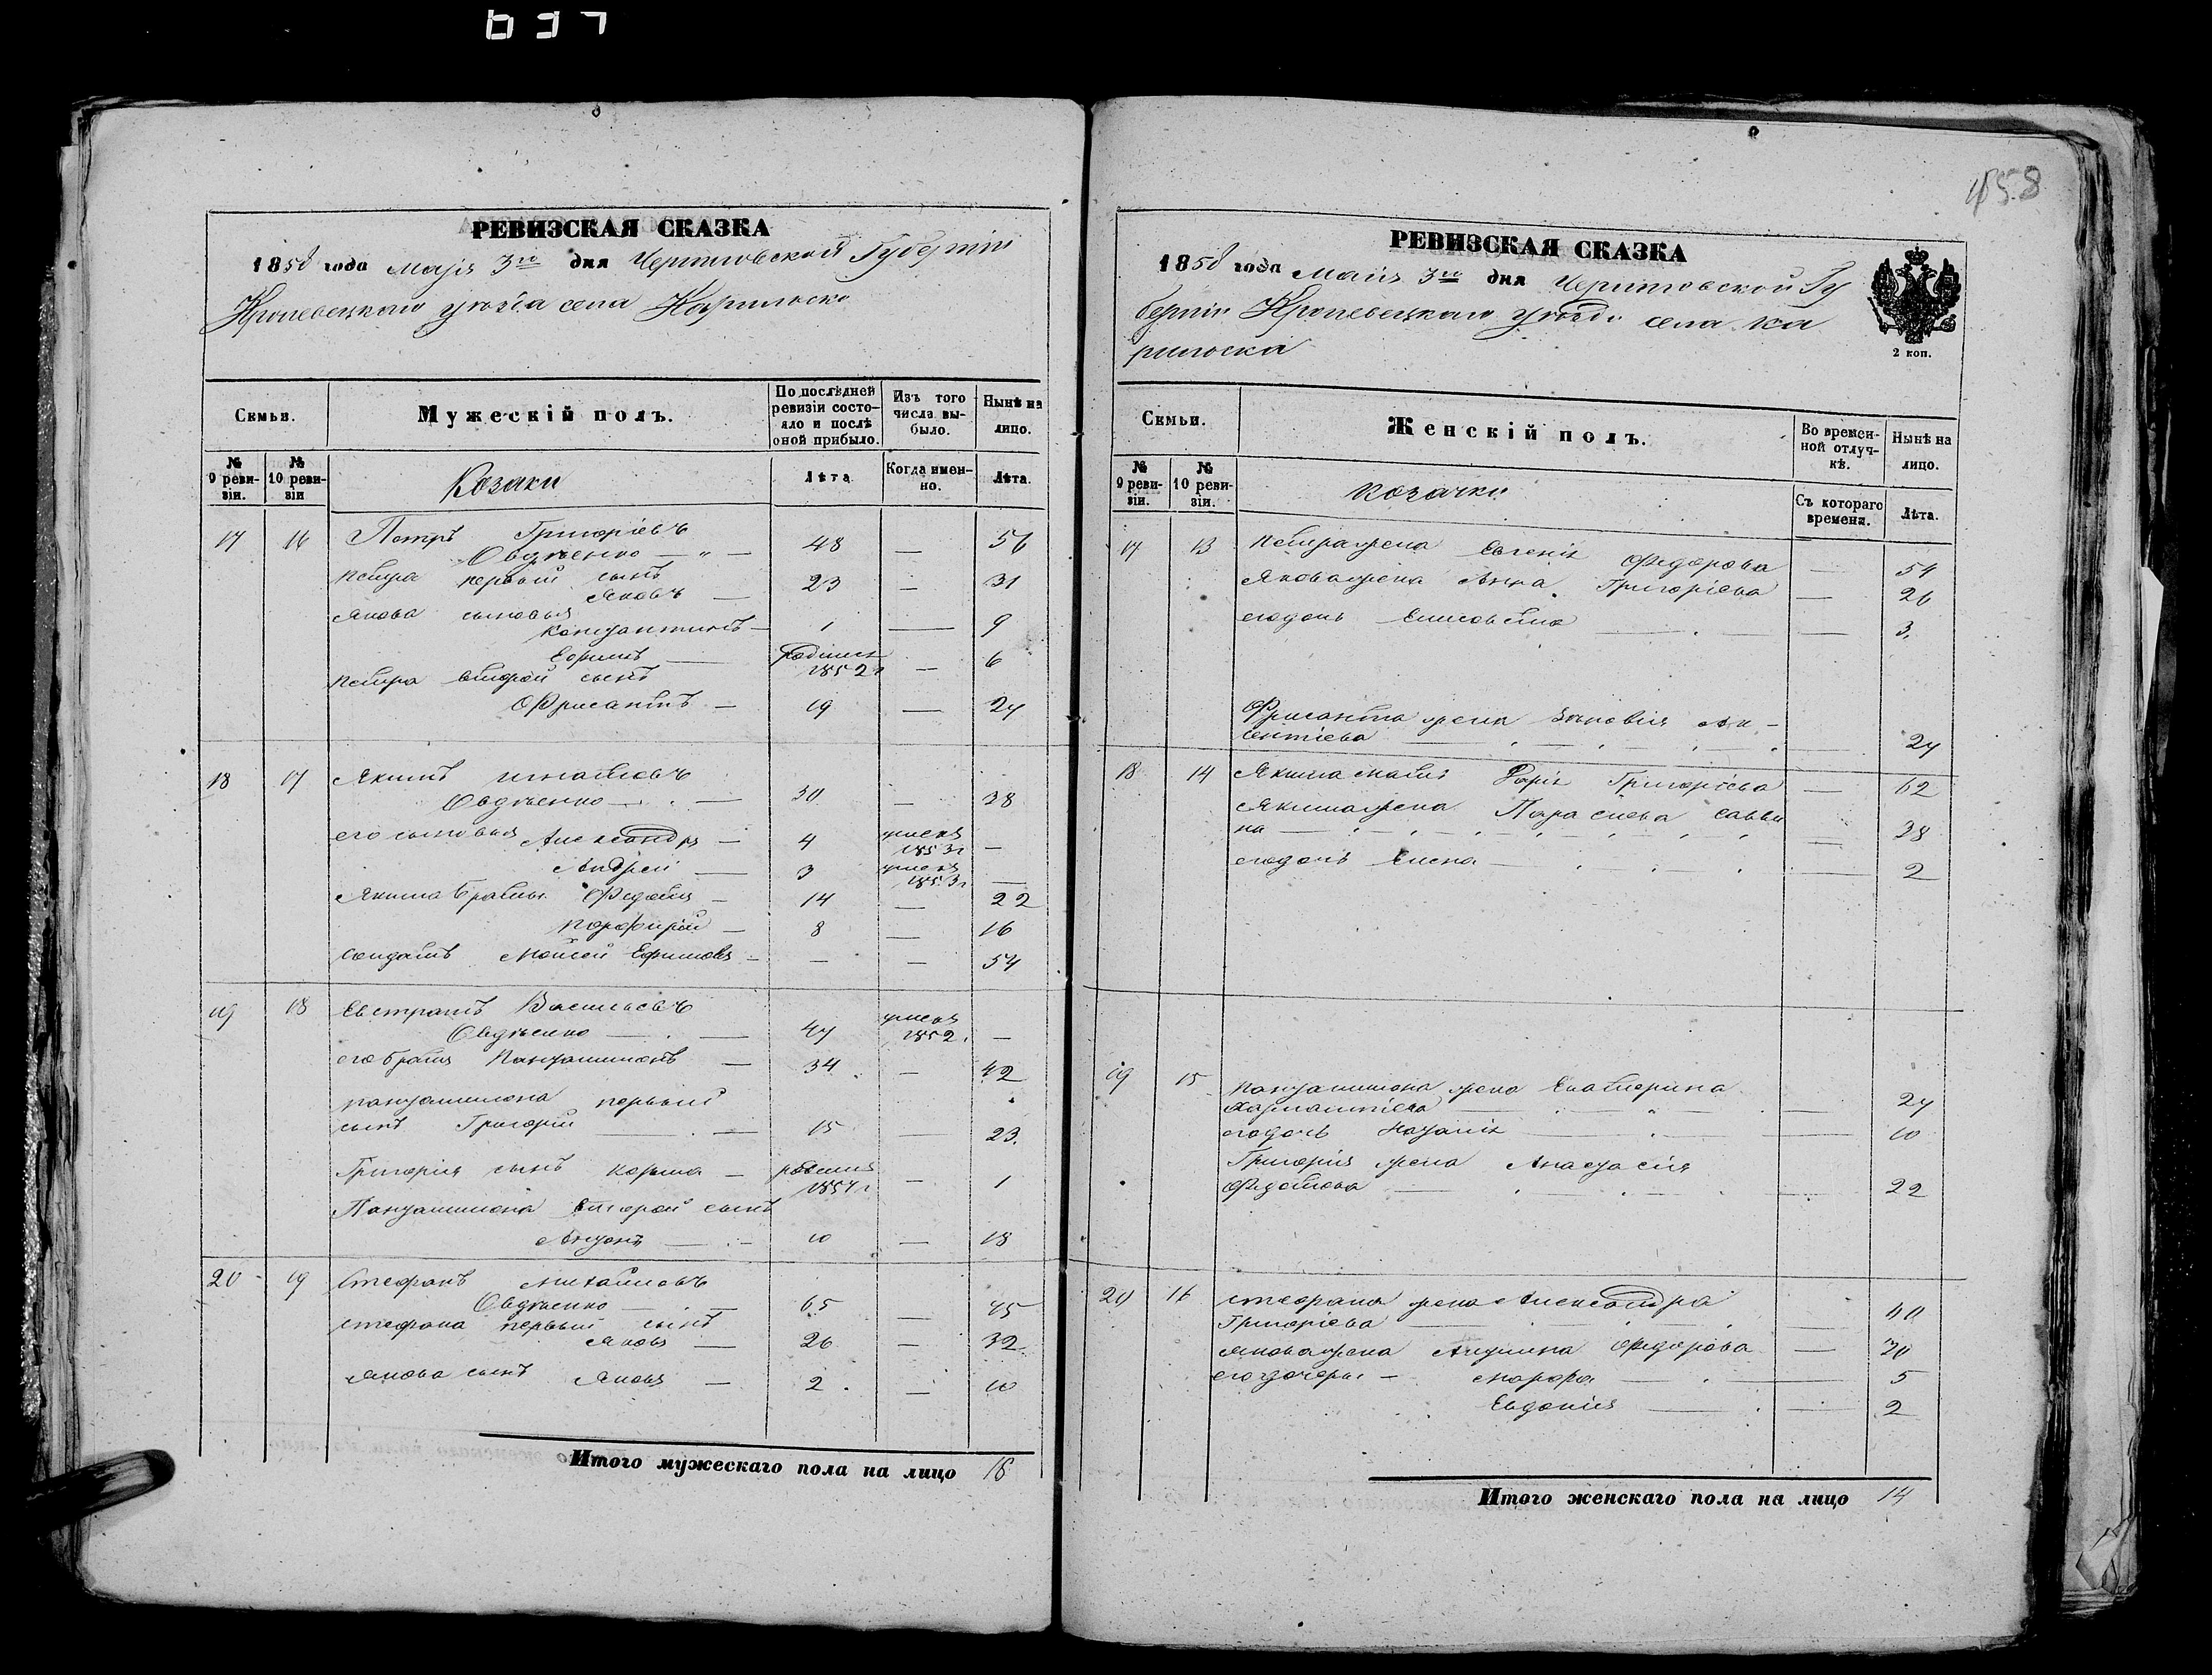 458
РЕВИЗСКАЯ СКАЗКА
1858 года Маія 3го дня Черниговской Губерніи
Кролевецкаго уѣзда села
Семьи.
Мужескій полъ.
По послѣдней ревизіи состояло и послѣ оной прибыло.
Изъ того числа выбыло.
Нынѣ на лицо.
№ 9 ревизіи.
№ 10 ревизіи
Козаки
Лѣта
Когда именно.
Лѣта.
17 16 Петръ Григоріевъ
Овдѣенко — „ — 48 — 56
Петра первый сынъ
Яковъ — 23 — 31
Якова сыновья
Константинъ — 1 — 9
Ефимъ — родился 1852г — 6
Петра второй сынъ
— 19 — 27
18 17 Якимъ Игнатовъ
Овдѣенко — 30 — 38
его сыновья Александръ — 4 умеръ 1853г —
Андрей — 3 умеръ 1853г —
Якима братья Федотъ — 14 — 22
Порфирій — 8 — 16
солдатъ Моисей Ефимовъ — — — 54
19 18 Евстратъ Васильевъ
Овдѣенко — 47 умеръ 1852. —
его братъ Пантелимонъ — 34 — 42
Пантелимона первый
сынъ Григорій — 15 — 23.
Григорія сынъ Козьма — родился 1857г — 1
Пантелимона второй сынъ
Антонъ — 10 — 18
20 19 Стефанъ Михайловъ
Овдѣенко — 65 —
Стефана первый сынъ
Яковъ — 26 — 32
Якова сынъ Яковъ — 2. — 10
Итого мужескаго пола на лицо 16
РЕВИЗСКАЯ СКАЗКА
1858 года Маія 3го дня Черниговской Гу
берніи Кролевецкаго уѣзда села Ка
2 коп.
Семьи.
Женскій полъ.
Во временной отлучкѣ.
Нынѣ на лицо.
№ 9 ревизіи.
№ 10 ревизіи.
Козачки
Съ котораго времени.
Лѣта.
17 13 Петра жена Евгенія Федорова — 54
Якова жена Анна Григоріева — 26
его дочь Елисавета — 3.
жена Зиновія Ак-
сентіева — 27
18 14 Якима мать Дарія Григоріева — 62
Якима жена Параскева Савви
на — 38
его дочь Елена — 2
19 15 Пантелимона жена Екатерина
— 27
его дочь Наталія — 10
Григорія жена Анастасія
Федотова — 22
20 16 Стефана жена Александра
Григоріева — 40
Якова жена Акулина Федорова — 30
его дочери — Марфа — 5
Евдокія — 2
Итого женскаго пола на лицо 14